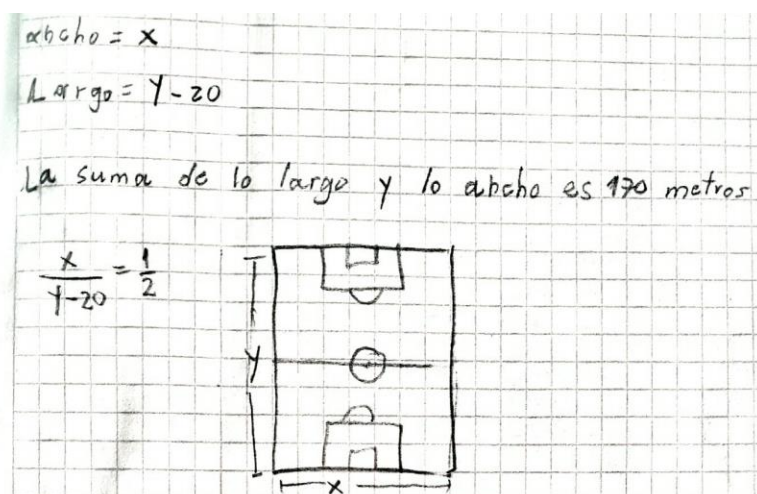 abcho = x
Largo = y - 20
La suma de lo largo y lo abcho es 170 metros
x/y-20 = 1/2
y
x